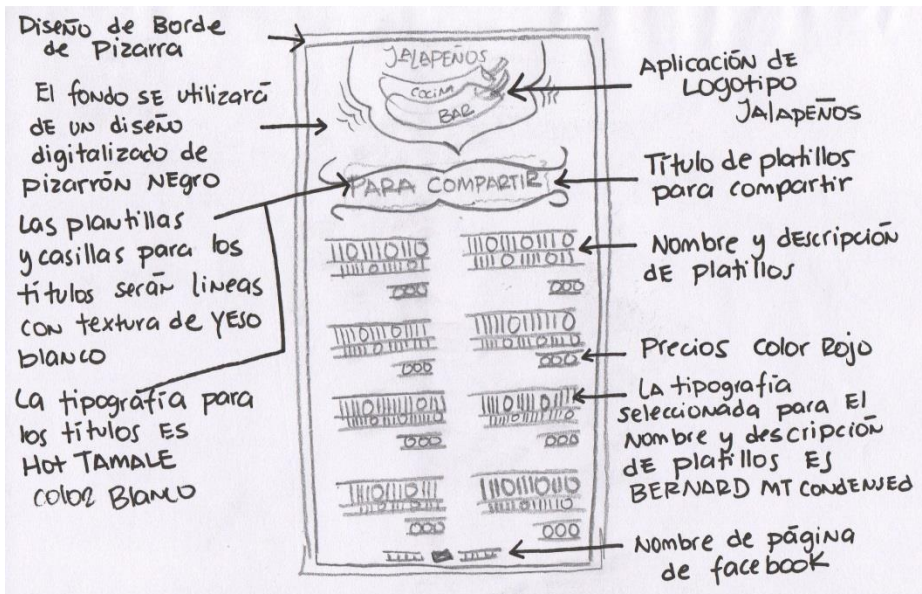 Diseño de Borde
de Pizarra
El fondo SE utilizará
dE un diseño
digitalizado de
pizarrón NEgro
Las plantillas
y casillas para los
títulos serán lineas
con textura de YESO
blanco
La tipografía para
los títulos Es
Hot TAMALE
color Blanco
JALAPEÑOS
COCINA
BAR
PARA COMPARTIR
Aplicación dE
Logotipo
JALAPEÑOS
Título de platillos
para compartir
Nombre y dEscripción
dE platillos
Precios color Rojo
LA tipografía
seleccionada para El
Nombre y descripción
dE platillos Es
BERNARD MT CONDENSED
Nombre de página
de facebook